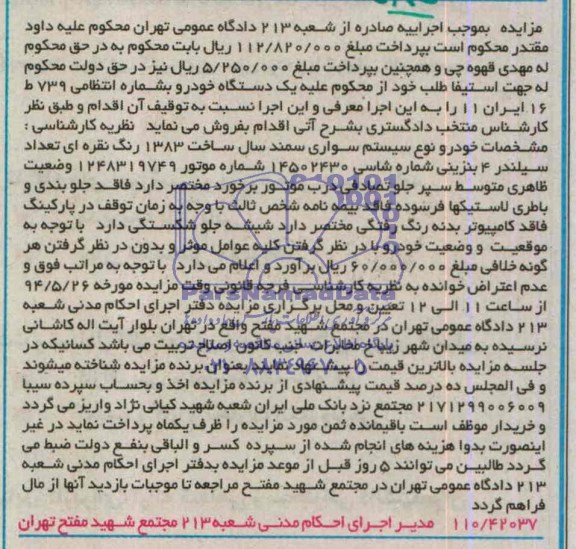 مزایده بموجب اجراییه صادره از شعبه ۲۱۳ دادگاه عمومی تهران محکوم علیه داود
مقتدر محکوم است بپرداخت مبلغ ۱۱۲/۸۲۰/۰۰۰ ریال بابت محکوم به در حق محکوم
له مهدی قهوه چی و همچنین بپرداخت مبلغ ۵/۲۵۰/۰۰۰ ریال نیز در حق دولت محکوم
له جهت استیفا طلب خود از محکوم علیه یک دستگاه خودرو بشماره انتظامی ۷۳۹ ط
۱۶ ایران ۱۱ را به این اجرا معرفی و این اجرا نسبت به توقیف آن اقدام و طبق نظر
کارشناس منتخب دادگستری بشرح آتی اقدام بفروش می نماید نظریه کارشناسی :
مشخصات خودرو نوع سیستم سواری سمند سال ساخت ۱۳۸۳ رنگ نقره ای تعداد
سیلندر ۴ بنزینی شماره شاسی ۱۴۵۰۲۴۳۰ شماره موتور ۱۲۴۸۳۱۹۷۴۹ وضعیت
ظاهری متوسط سپر جلو تصادفی درب موتور برخورد مختصر دارد فاقد جلو بندی و
باطری لاستیکها فرسوده فاقد بیمه نامه شخص ثالث با وجه به زمان توقف در پارکینگ
فاقد کامپیوتر بدنه رنگ رفتگی مختصر دارد شیشه جلو شکستگی دارد با توجه به
موقعیت و وضعیت خودرو با در نظر گرفتن کلیه عوامل موثر و بدون در نظر گرفتن هر
گونه خلافی مبلغ ۶۰/۰۰۰/۰۰۰ ریال برآورد و اعلام می دارد با توجه به مراتب فوق و
عدم اعتراض خوانده به نظریه کارشناسی فرجه قانونی وقت مزایده مورخه ۹۴/۵/۲۶
از ساعت ۱۱ الی ۱۲ تعیین و محل برگزاری مزایده دفتر اجرای احکام مدنی شعبه
۲۱۳ دادگاه عمومی تهران در مجتمع شهید مفتح واقع در تهران بلوار آیت اله کاشانی
نرسیده به میدان شهر زیبا خ مخابرات جنب کانون اصلاح تربیت می باشد کسانیکه در
جلسه مزایده بالاترین قیمت را پیشنهاد نمایند بعنوان برنده مزایده شناخته میشوند
و فی المجلس ده درصد قیمت پیشنهادی از برنده مزایده اخذ و بحساب سپرده سیبا
۲۱۷۱۲۹۹۰۰۶۰۰۹ مجتمع نزد بانک ملی ایران شعبه شهید کیائی نژاد واریز می گردد
و خریدار موظف است باقیمانده ثمن مورد مزایده را ظرف یکماه پرداخت نماید در غیر
اینصورت بدوا هزینه های انجام شده از سپرده کسر و الباقی بنفع دولت ضبط می
گردد طالبین می توانند ۵ روز قبل از موعد مزایده بدفتر اجرای احکام مدنی شعبه
۲۱۳ دادگاه عمومی تهران در مجتمع شهید مفتح مراجعه تا موجبات بازدید آنها از مال
فراهم گردد
۱۱۰/۴۲۰۳۷ مدیر اجرای احکام مدنی شعبه ۲۱۳ مجتمع شهید مفتح تهران
ParsNamadData